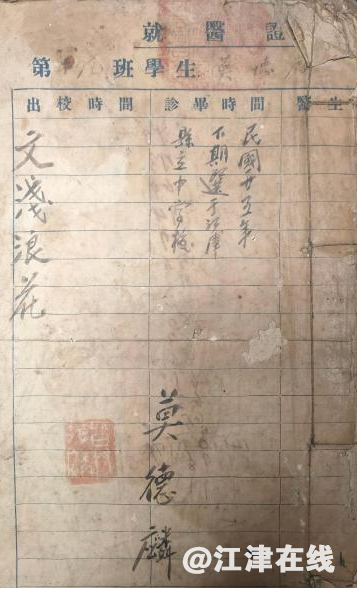 就醫證
第 班學生
出校時間 診畢時間 醫生
民國廿五年
下期選于江津
縣立中學校
文淺浪花
莫德麟
@江津在线